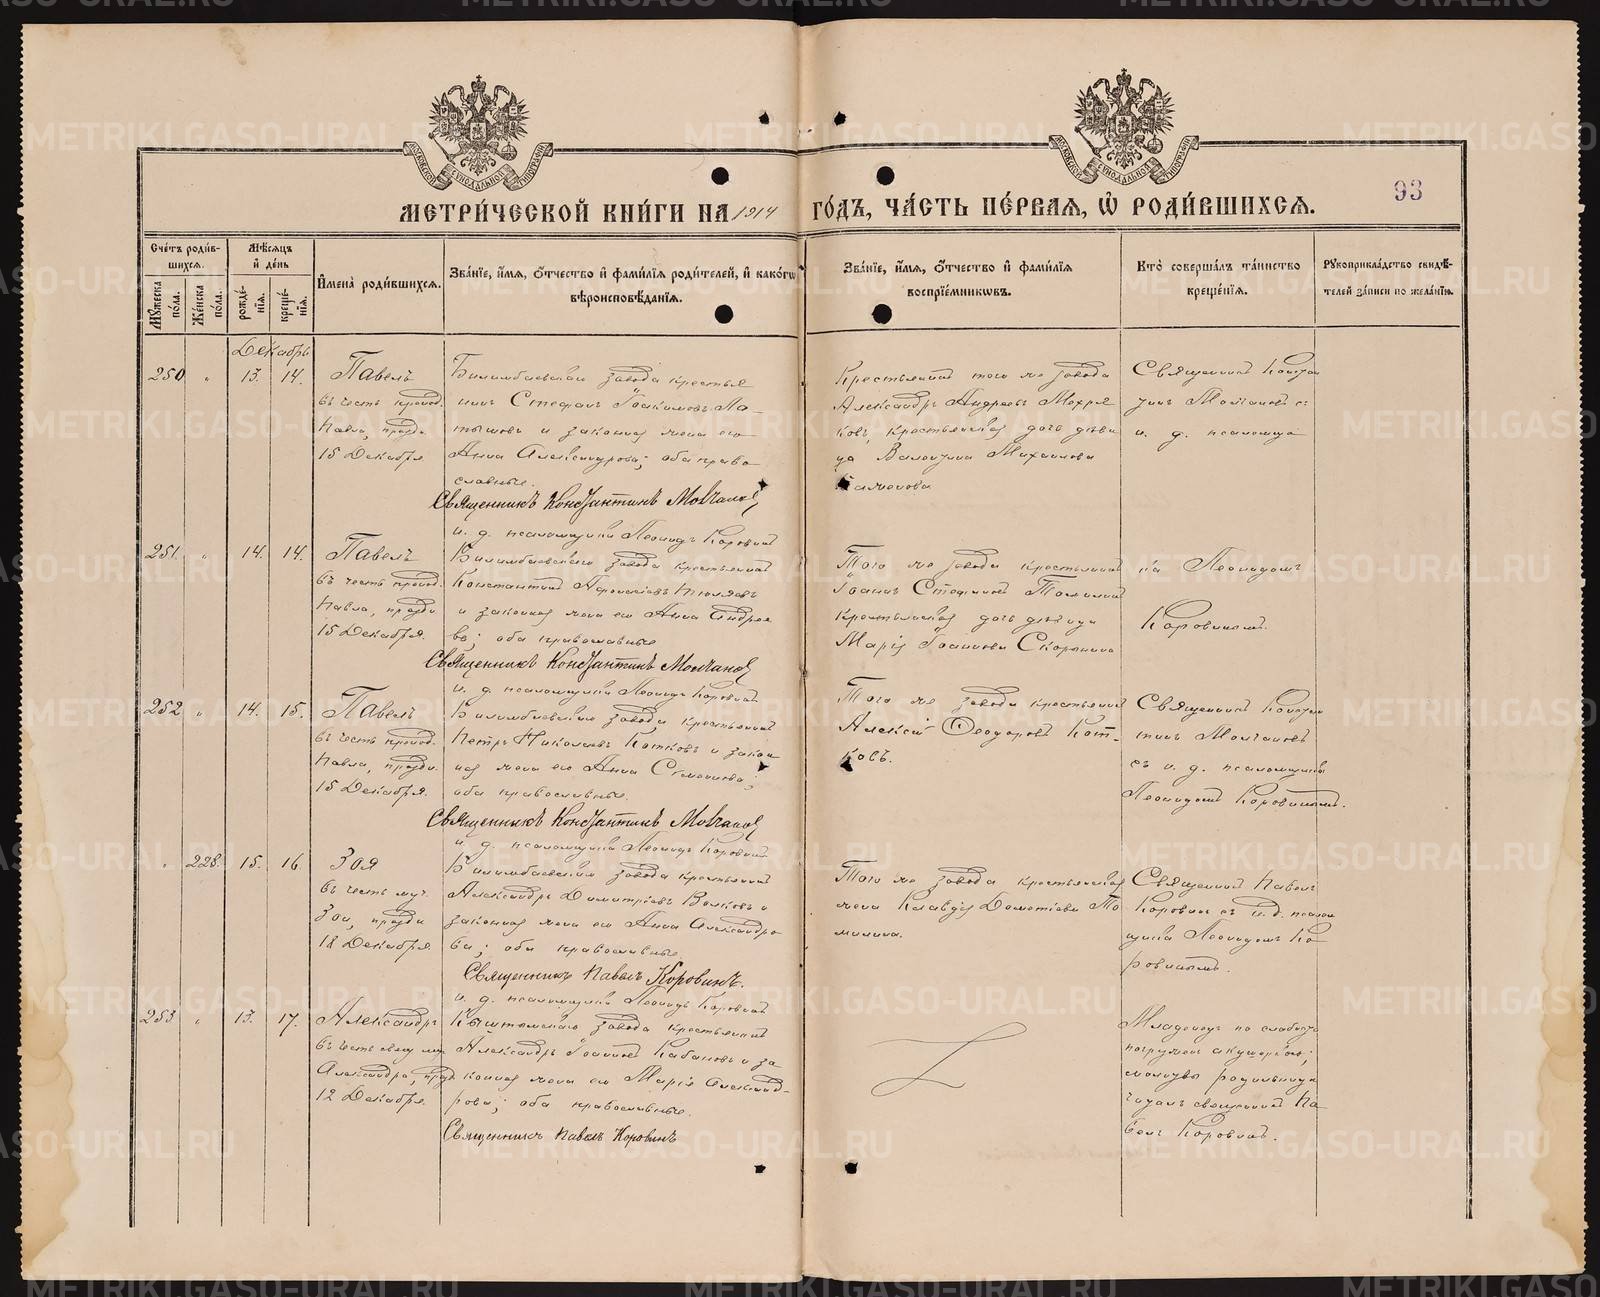 93
МЕТРИ́ЧЕСКОЙ КНИ́ГИ НА 1914 ГО́ДЪ, ЧА́СТЬ ПЕ́РВАЯ, Ѡ҆ РОДИ́ВШИХСЯ.
Сче́тъ роди́вшихся.
Мꙋ́жеска по́ла.
Же́нска по́ла.
Мѣ́сяцъ и҆ де́нь
рожде́нїя.
креще́нїя.
И҆мена̀ роди́вшихся.
Зва́нїе, и҆́мя, ѻ҆́тчество и҆ фами́лїя роди́телей, и҆ како́гѡ
вѣроисповѣ́данїя.
Зва́нїе, и҆́мя, ѻ҆́тчество и҆ фами́лїя
воспрїе́мникѡвъ.
Кто̀ соверша́лъ та́инство
креще́нїя.
Рꙋкоприкла́дство свидѣ́-
телей за́писи по жела́нїю.
Декабрь
250 " 13. 14. Павелъ
въ честь препод.
Павла, празд.
15 Декабря
Билимбаевскаго завода крестья
нинъ Стефанъ Іоакимовъ Ла-
тышовъ и законная жена его
Анна Александрова; оба право
славные.
Священникъ Константинъ Молчановъ
и. д. псаломщика Леонидъ Коровинъ
Крестьянинъ того же завода
Александръ Андреевъ Мохря
ковъ, крестьянская дочь дѣви
ца Валентина Михаилова
Священникъ Констан
тинъ Молчановъ съ
и. д. псаломща
251. " 14. 14. Павелъ
въ честь препод.
Павла, празд.
15 Декабря.
Билимбаевскаго завода крестьянинъ
Константинъ
и законная жена его Анна Андрее
ва; оба православные
Священникъ Константинъ Молчановъ
и. д. псаломщика Леонидъ Коровинъ
Того же завода крестьянинъ
Іоаннъ Стефановъ Томилинъ
крестьянская дочь дѣвица
Марія Іоаннова Скорынина
ка Леонидомъ
Коровинымъ.
252 " 14. 15. Павелъ
въ честь препод.
Павла, празд.
15 Декабря.
Билимбаевскаго завода крестьянинъ
Петръ Николаевъ Котковъ и закон
ная жена его Анна Симонова;
оба православные.
Священникъ Константинъ Молчановъ
и. д. псаломщика Леонидъ Коровинъ
Того же завода крестьянинъ
Алексій Ѳеодоровъ Кот-
ковъ.
Священникъ Констан
тинъ Молчановъ
съ и. д. псаломщика
Леонидомъ Коровинымъ.
" 228. 15. 16 Зоя
въ честь муч.
Зои, празд.
18 Декабря.
Билимбаевскаго завода крестьянинъ
Александръ Димитріевъ Волковъ и
законная жена его Анна Александро
ва; оба православные.
Священникъ Павелъ Коровинъ.
и. д. псаломщика Леонидъ Коровинъ
Того же завода крестьянская
жена Клавдія Дометіева То
милина.
Священникъ Павелъ
Коровинъ съ и. д. псалом
щика Леонидомъ Ко
ровинымъ.
253 " 13. 17. Александръ
въ честь свящ. муч.
Александра, празд
12 Декабря.
Кыштымскаго завода крестьянинъ
Александръ Іоанновъ Кабановъ и за
конная жена его Марія Александ-
рова; оба православные.
Священникъ Павелъ Коровинъ
Младенецъ по слабости
погруженъ акушеркою;
молитвы родильницѣ
читалъ священникъ Па
велъ Коровинъ.
METRIKI.GASO-URAL.RU